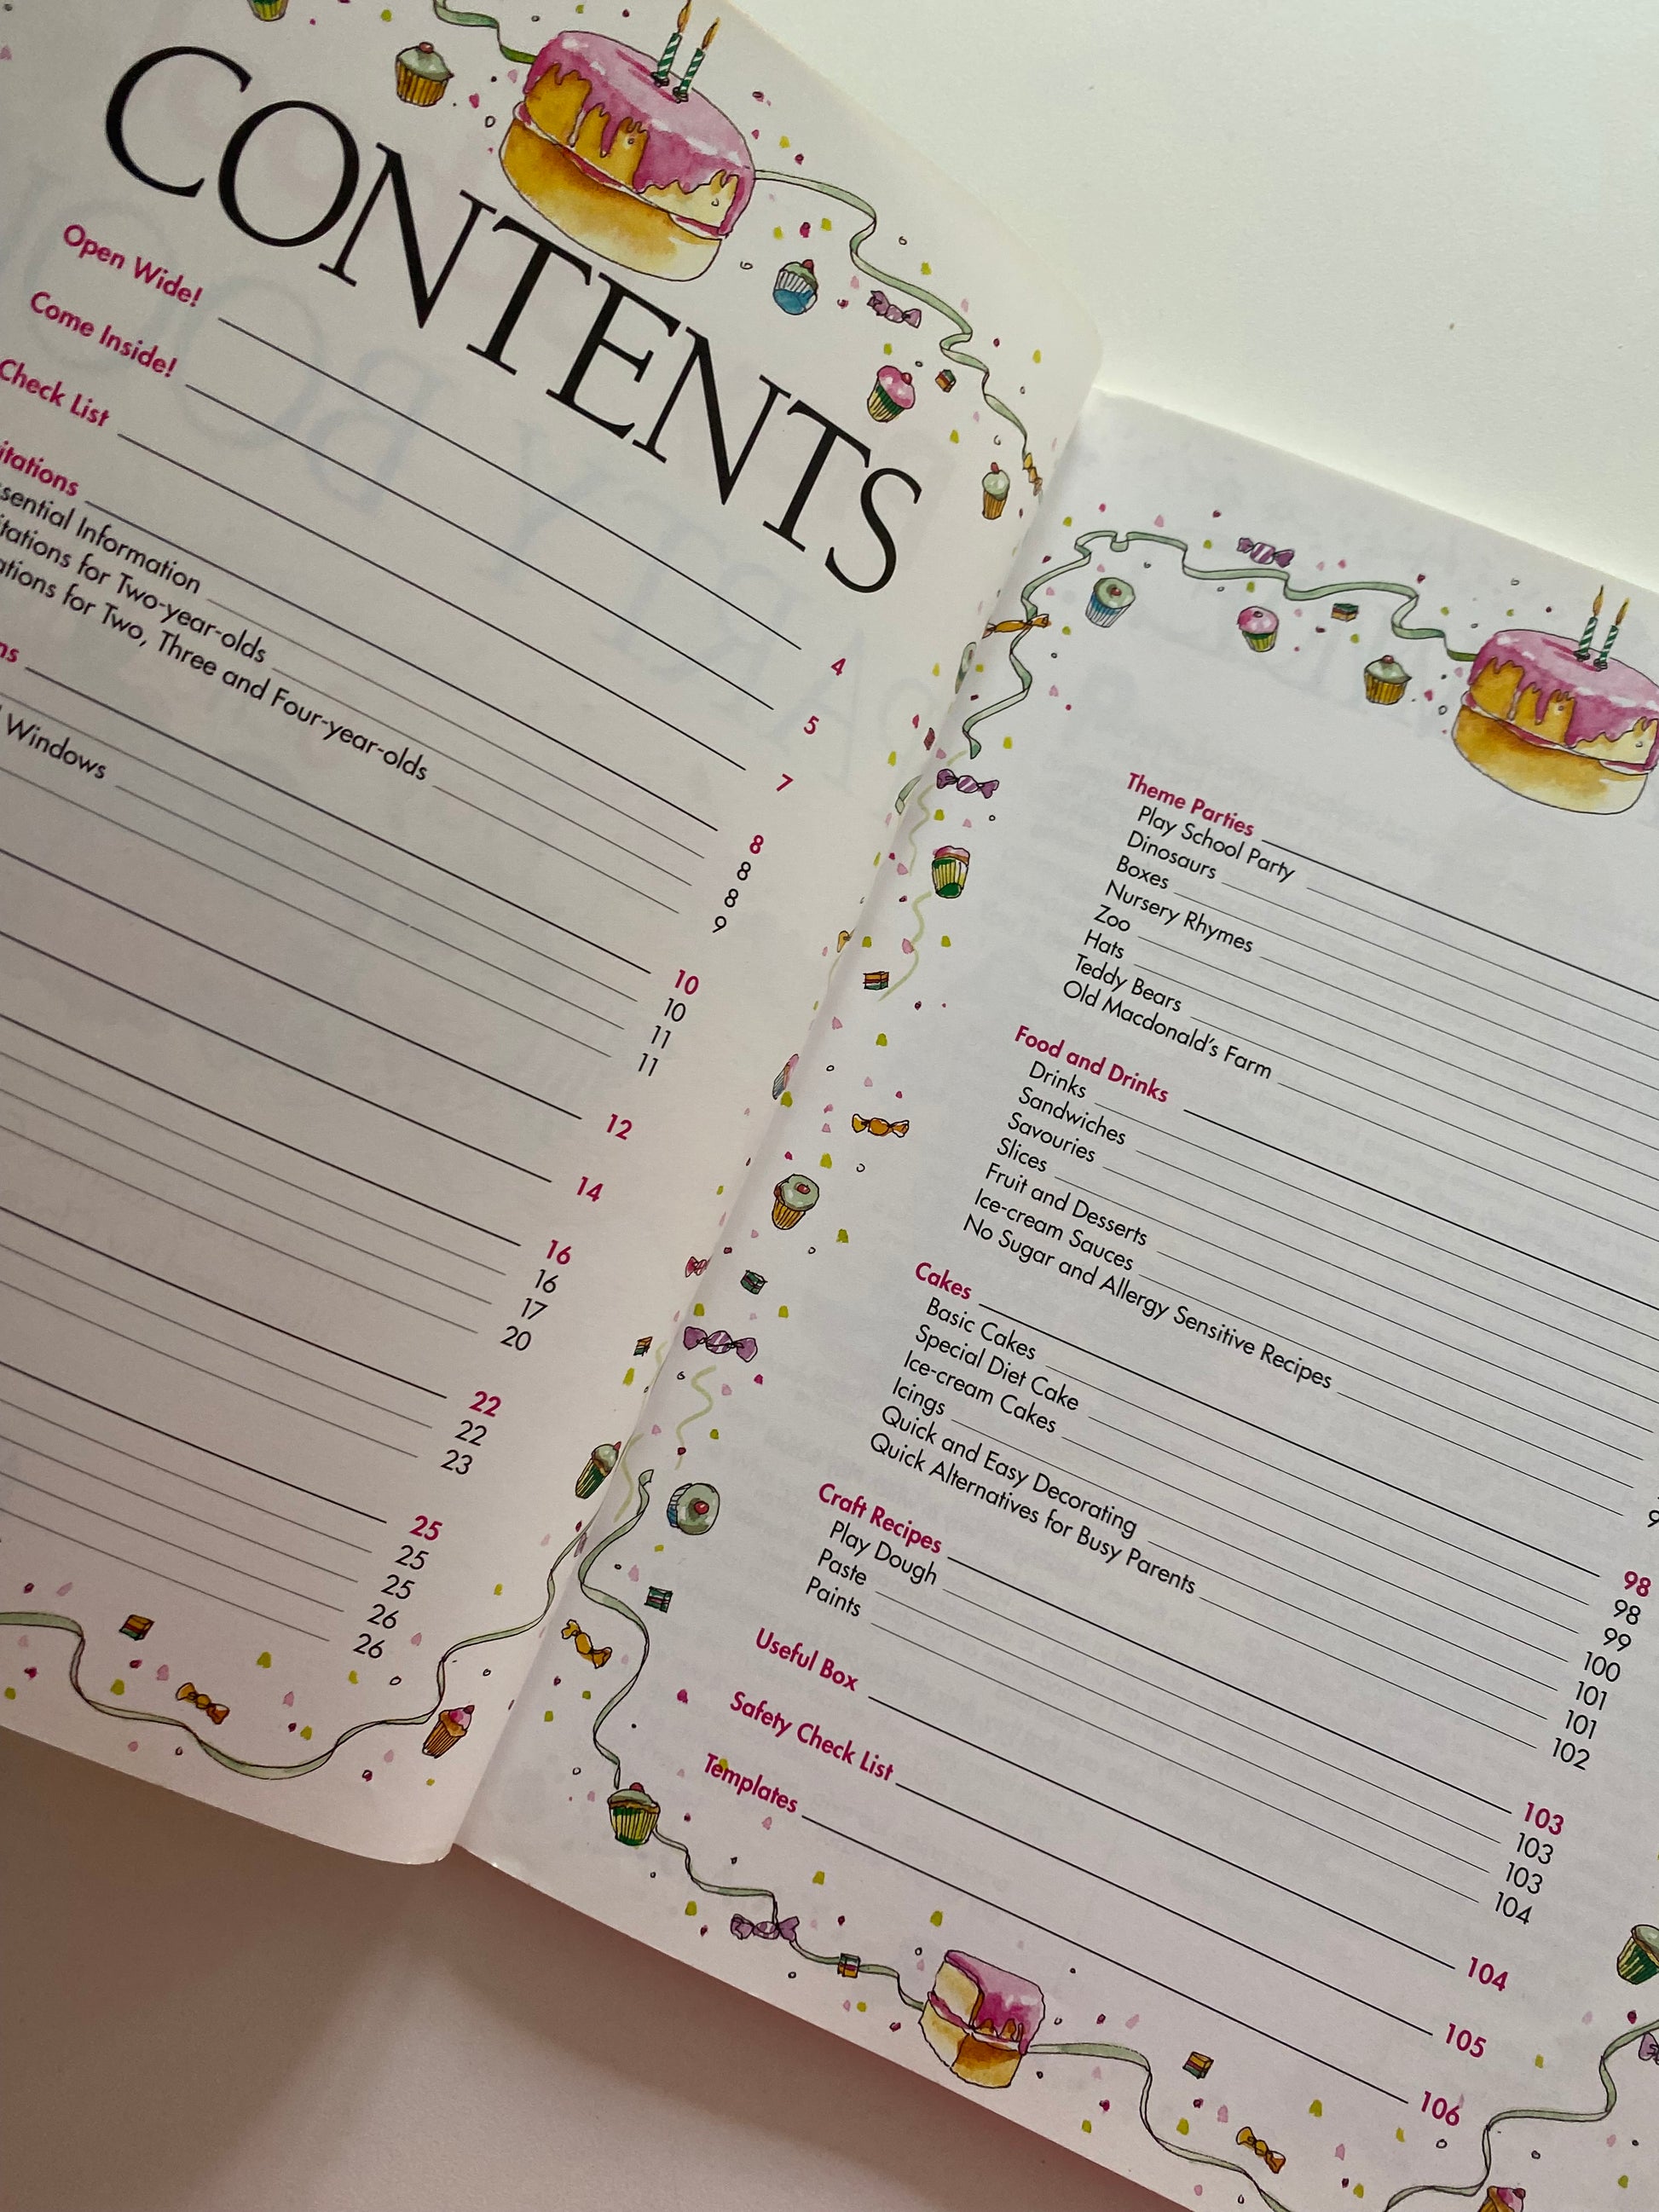 CONTENTS
Open Wide! 4
Come Inside! 5
Check List 7
itations 8
sential Information 8
tations for Two-year-olds 8
ations for Two, Three and Four-year-olds 9
ns 10
10
Windows 11
11
12
14
16
16
17
20
22
22
23
25
25
25
26
26
Theme Parties
Play School Party
Dinosaurs
Boxes
Nursery Rhymes
Zoo
Hats
Teddy Bears
Old Macdonald's Farm
Food and Drinks
Drinks
Sandwiches
Savouries
Slices
Fruit and Desserts
Ice-cream Sauces
No Sugar and Allergy Sensitive Recipes
Cakes 98
Basic Cakes 98
Special Diet Cake 99
Ice-cream Cakes 100
Icings 101
Quick and Easy Decorating 101
Quick Alternatives for Busy Parents 102
Craft Recipes 103
Play Dough 103
Paste 103
Paints 104
Useful Box 104
Safety Check List 105
Templates 106